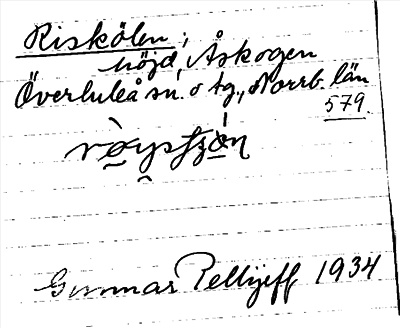 Riskölen;
höjd, Åskogen
Överluleå sn. o tg., Norrb. län
579.
Gunnar Pellijeff 1934